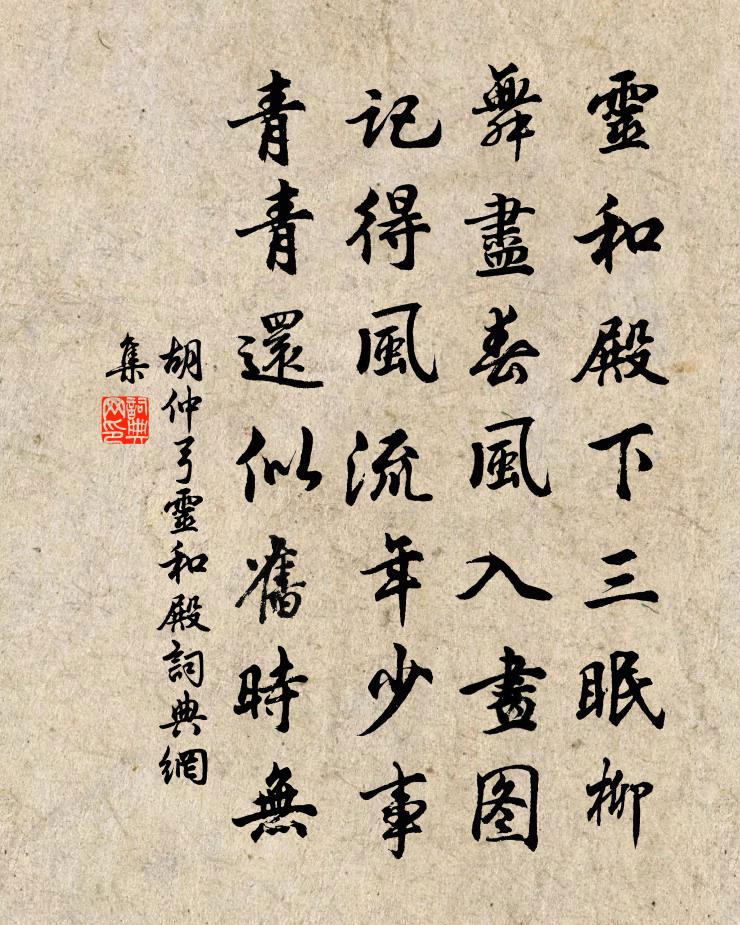 靈和殿下三眠柳
舞盡春風入畫图
記得風流年少事
青青還似舊時無
胡仲弓靈和殿詞典網
集
詞典
网印